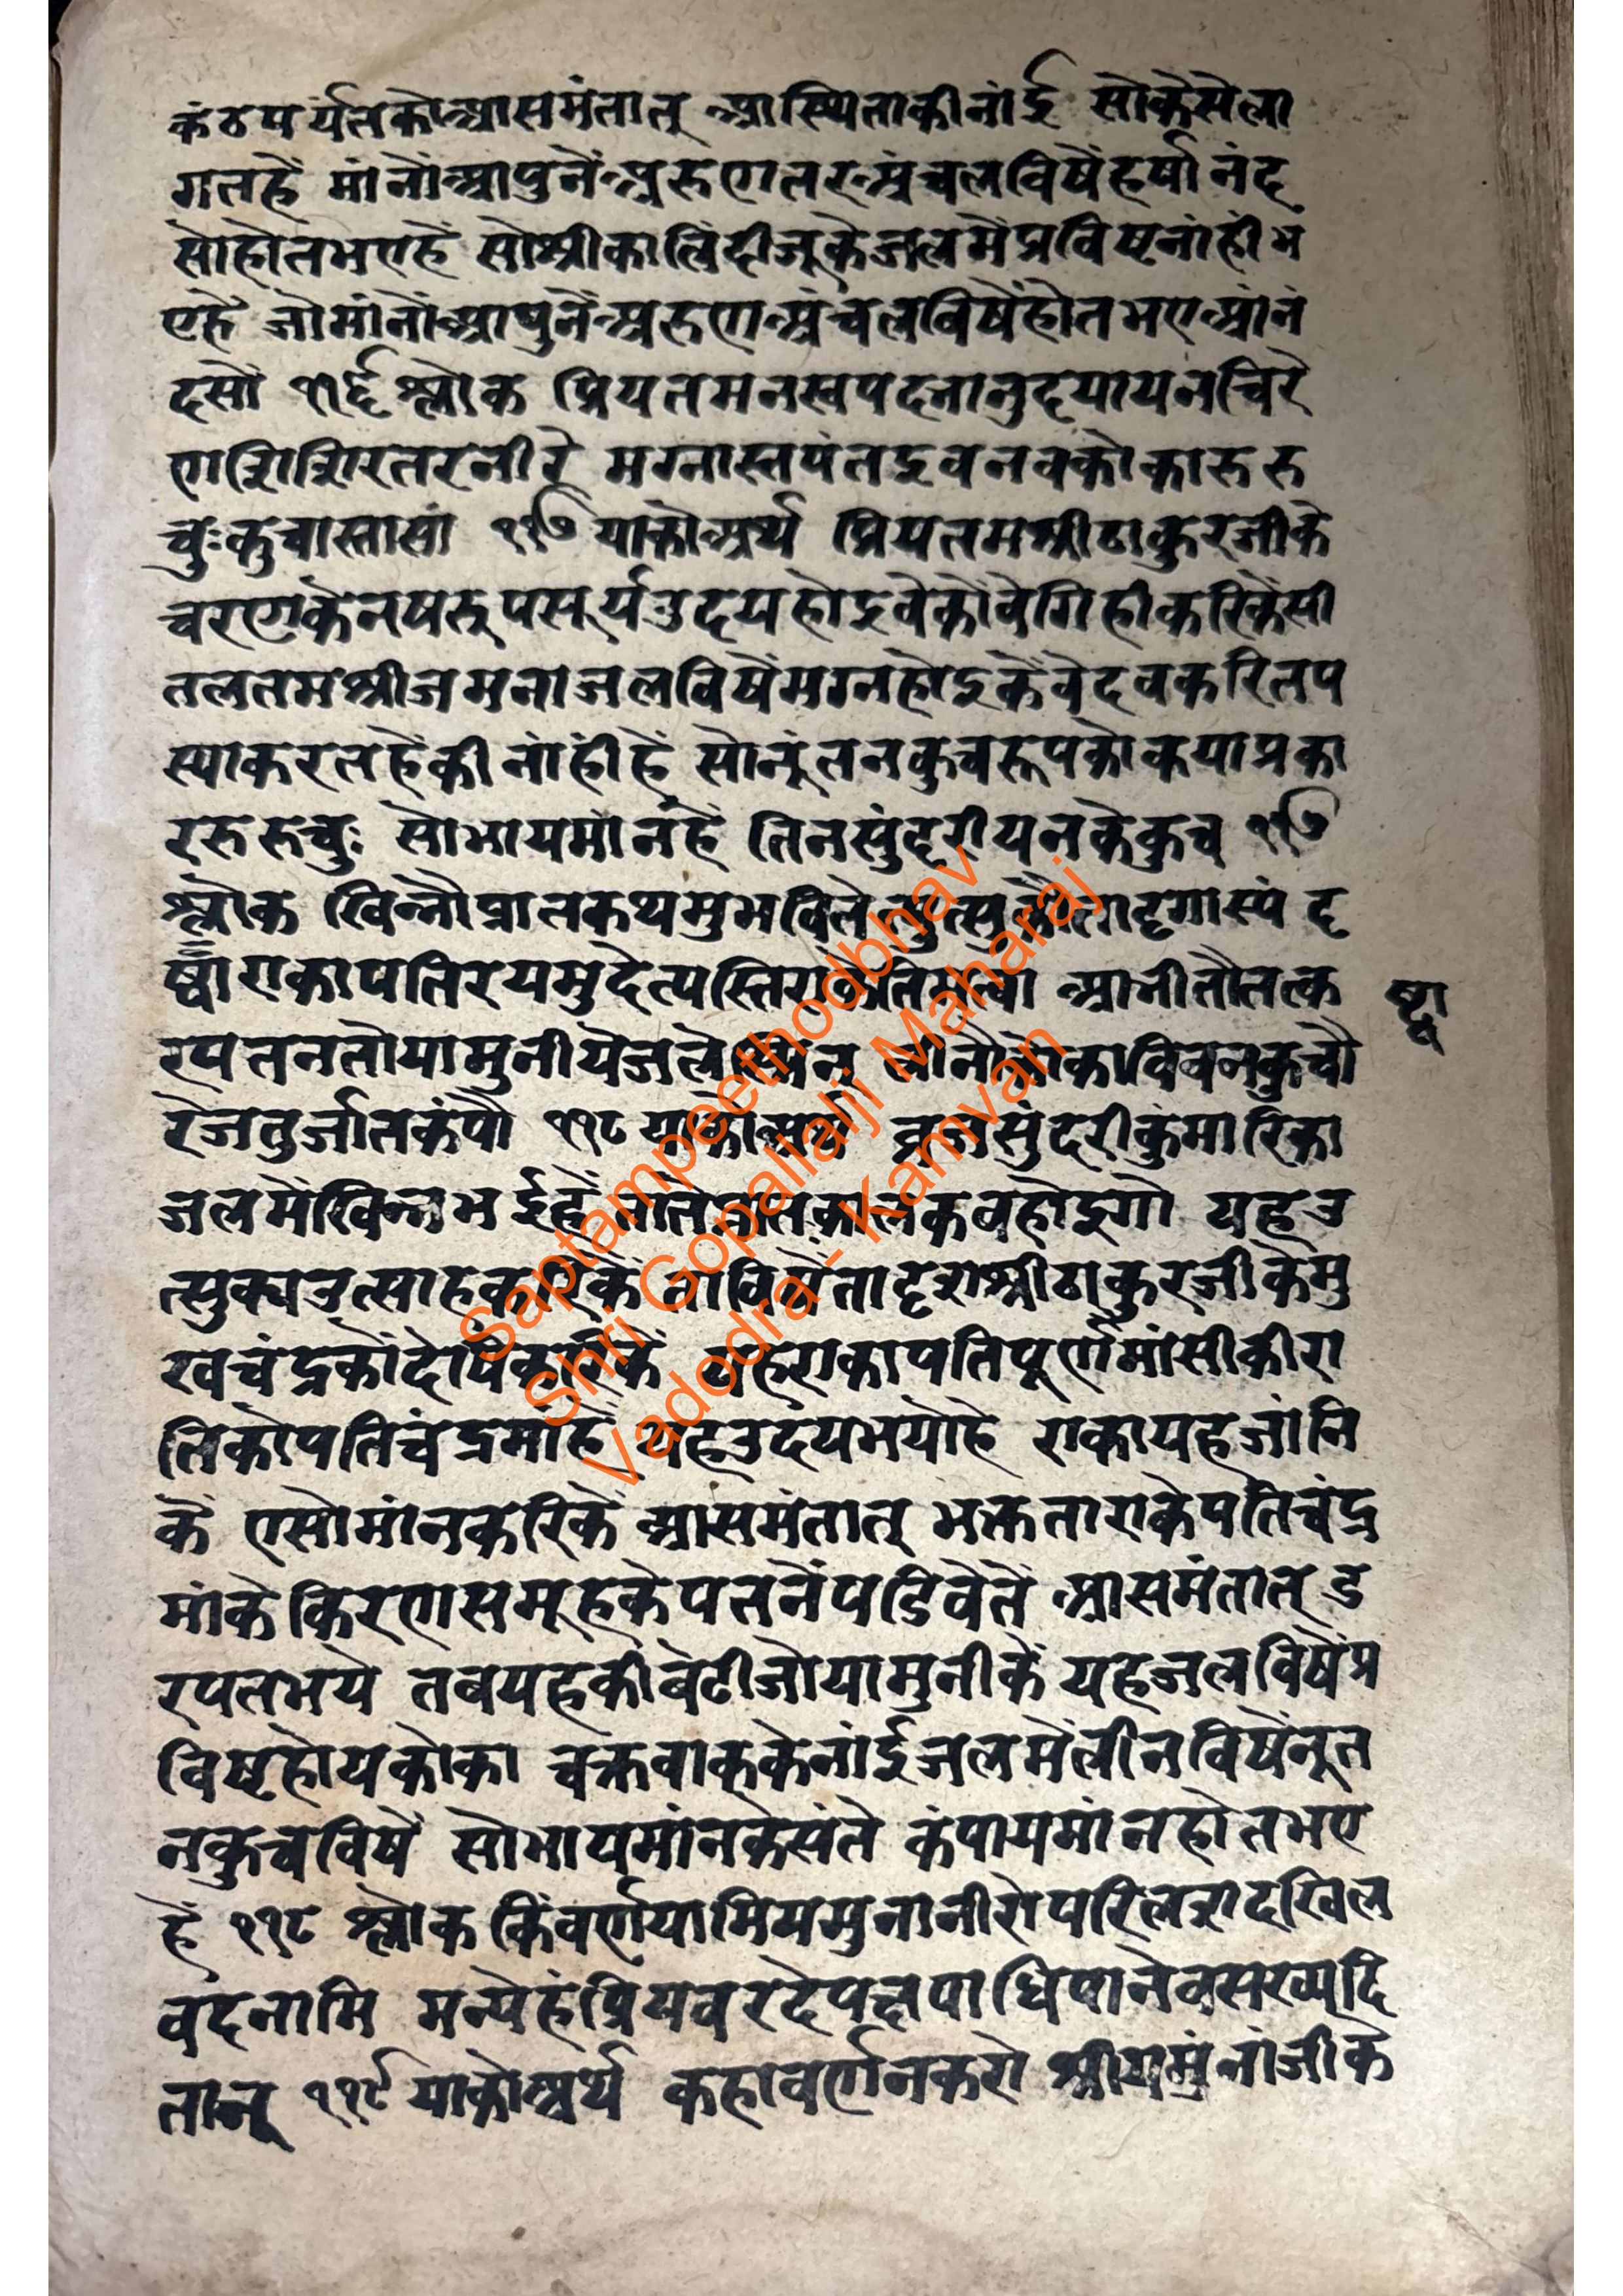 कंठपर्यंतकोआसमंतात् आस्थिताकीनांई सोकैसेला
गतहैं मांनोंआपुनेंअरुणतरअंचलविषैंहर्षानंद
सोहोतभएहैं सोश्रीकालिंदीजूकेजलमैंप्रविष्टनांहींभ
एहैं जोमांनोंआपुनेंअरुणअंचलविषैंहोतभएआंनं
दसों ११६ श्लोक प्रियतमनखपदनानुदयायनचिरे
णशिशिरतरनीरे मग्नास्तपंतइवनवकोकारुरु
चुःकुचास्तासां ११७ याकोअर्थ प्रियतमश्रीठाकुरजीके
चरणकेनषरूपसूर्यउदयहोइवेकोंवेगिहीकरिकेंसी
तलतमश्रीजमनाजलविषैंमग्नहोइकेंवेदवकरितप
स्याकरतहैंकीनांहींहैं सोनूंतनकुचरूपकोकयाप्रका
ररुरुचुः सोभायमांनहैं तिनसुंदरीयनकेकुच ११७
श्लोक खिन्नौप्रातकथमुभवितेत्युत्सुकौतादृगास्यं दृ
ष्ट्वाराकापतिरयमुदेत्यस्तिराकेतिमत्वा आनीतौतत्क
रपतनतोयामुनीयेजलेस्मिन् लीनौकोकाविवनकुचौ
रेजतुर्जातकंपौ ११८ याकोअर्थ व्रजसुंदरीकुंमारिका
जलमेंखिन्नभईहैं तातेंप्रातकालकबहोइगो यहउ
त्सुकाउत्साहकरिकें ताविषैंतादृशश्रीठाकुरजीकेमु
खचंद्रकोंदेषिकरिकें यहराकापतिपूर्णमांसीकीरा
तिकोपतिचंद्रमांहै यहउदयभयोहै राकायहजांनि
कें एसोमांनकरिकें आसमंतात् भक्तताराकेपतिचंद्र
मांके किरणसमूहकेपतनेंपडिवेतें आसमंतात् उ
रपतभये तबयहकीबेटीजोयामुनीकें यहजलविषैंप्र
विष्टहोयकोका चक्रवाककेनांईजलमेंलीनविषैंनूत
नकुचविषैं सोभायमांनकेसंते कंपायमांनहोतभए
हैं ११८ श्लोक किंवर्णयामियमुनानीरोपरिलशदखिल
वदनामि मन्येहंप्रियवरदेपद्मपाधिपानेवसख्युदि
तान् ११९ याकोअर्थ कहावर्णनकरों श्रीयमुंनांजीके
ष्ट्वा
Saptampeethodbhav
Shri Gopallalji Maharaj
Vadodra - Kamvan